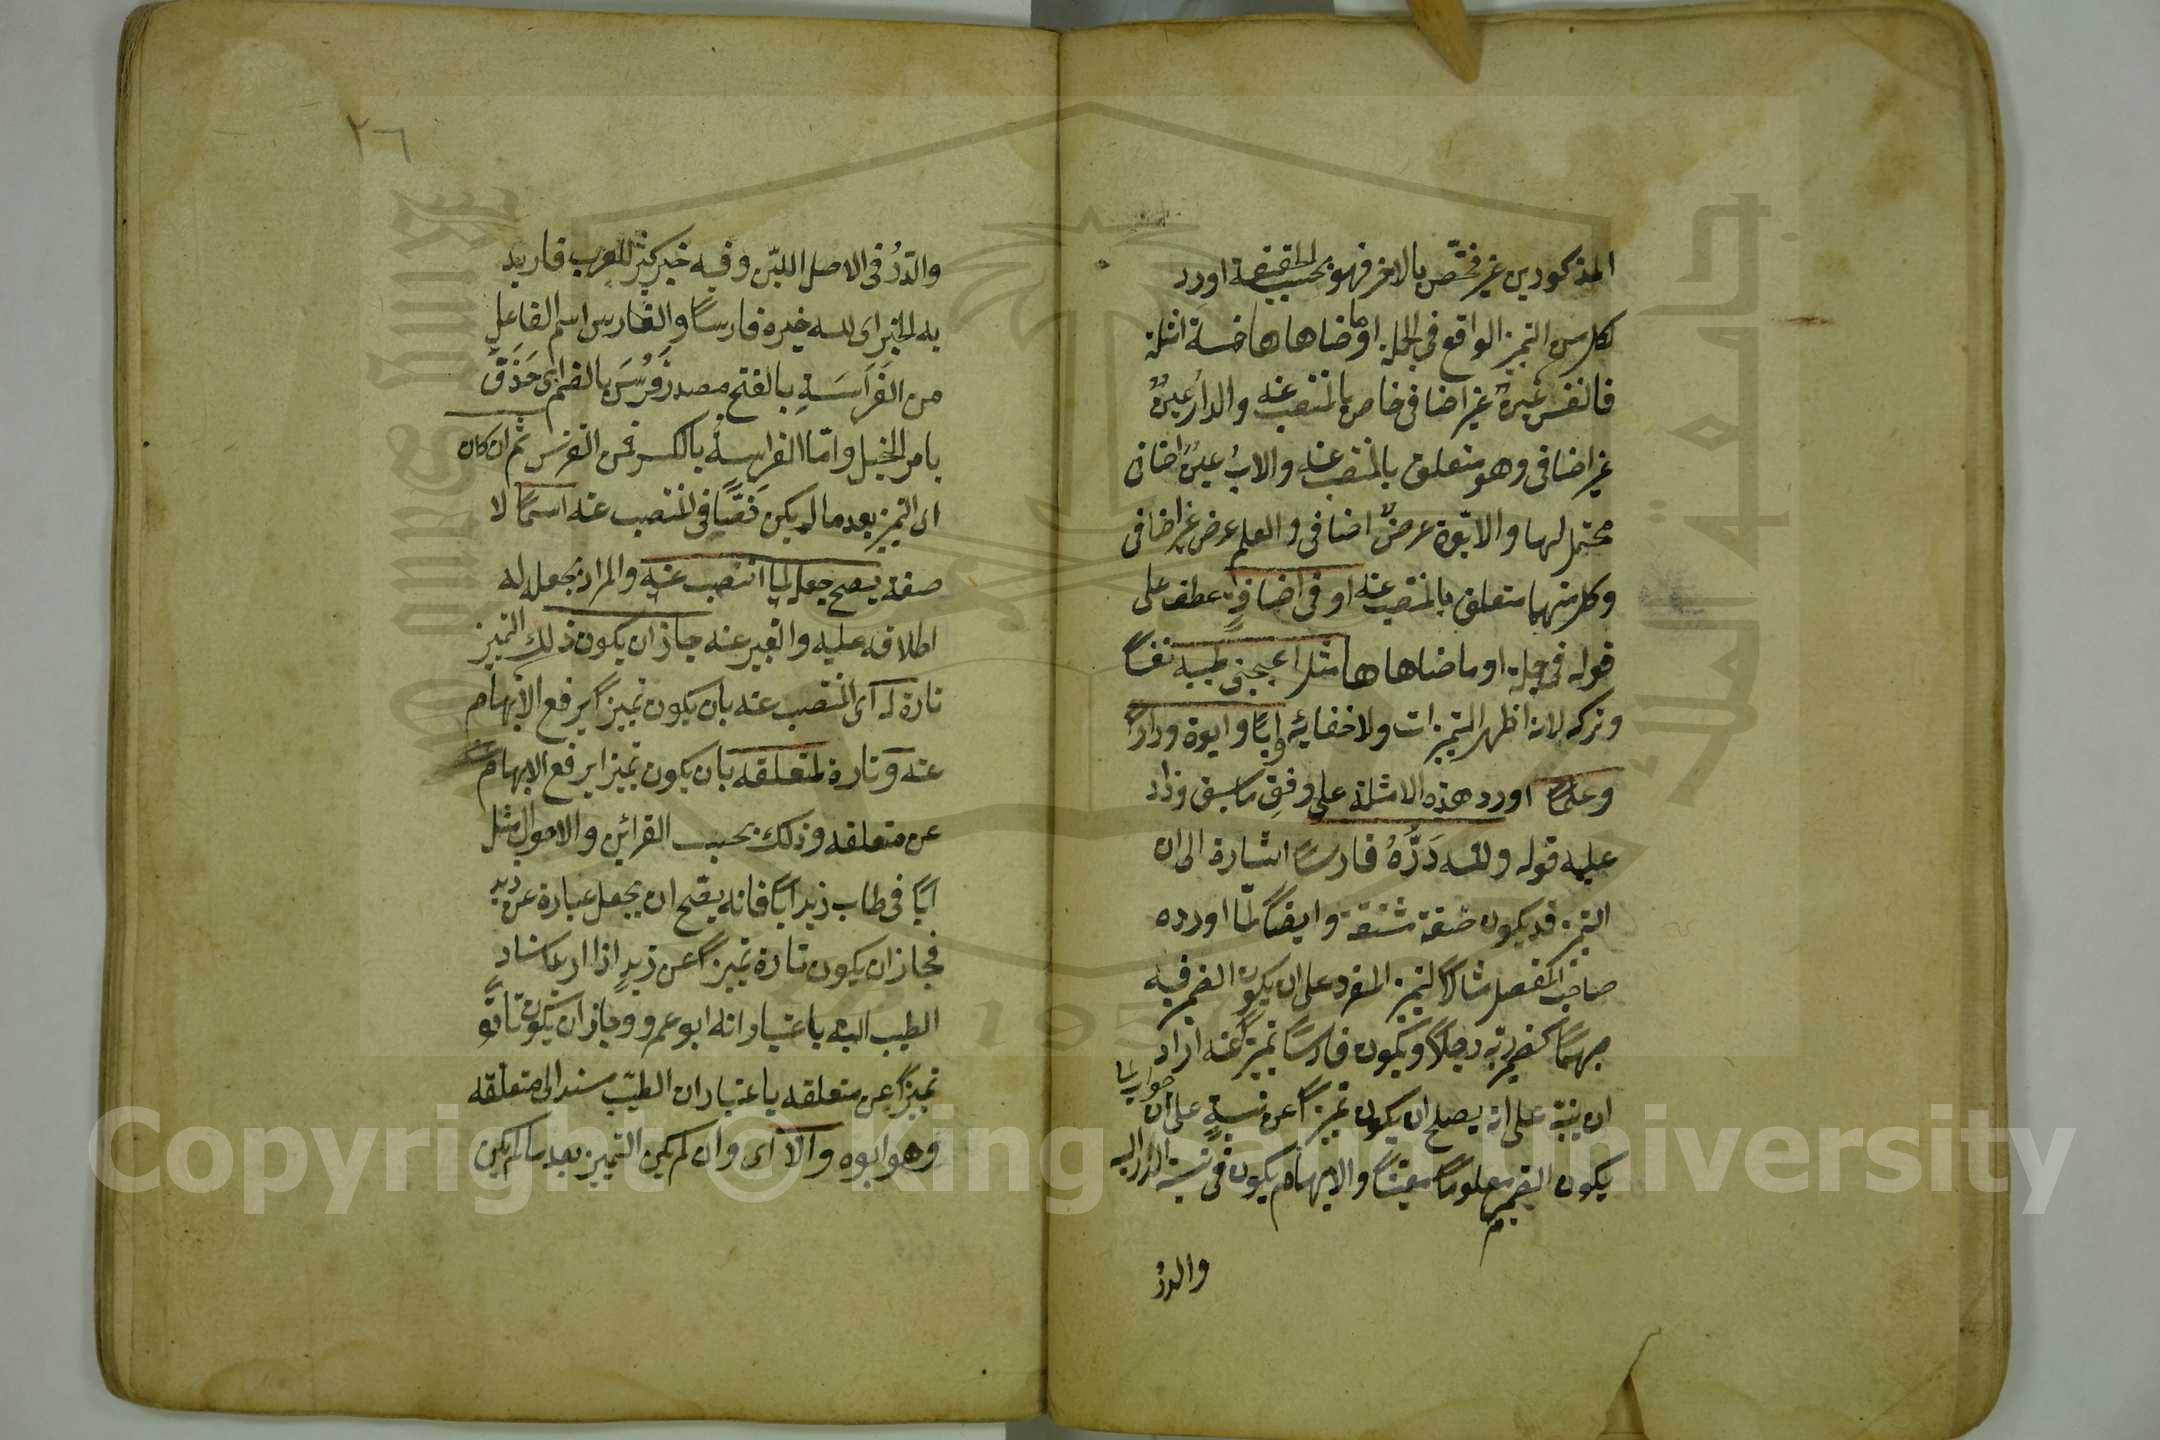 المذكورين غير مختص بالاخر فهو بحسب الحقيقة اورد
لكل من التميز الواقع في الجملة او ما ضاهاها خمسة امثلة
فالنفس عين غير اضافى خاص بالمنتصب عنه والدار عين
غير اضافى وهو متعلق بالمنتصب عنه والاب عين اضافى
محتمل لهما والابوة عرض اضافى والعلم عرض غير اضافى
وكل منهما متعلق بالمنتصب عنه او فى اضافة عطف على
قوله فى جملة او ما ضاهاها مثل اعجبنى طيبه نفسًا
وتركه لانه اظهر التميزات ولا خفاء به وابًا وابوة ودارًا
وعلمًا اورد هذه الامثلة على وفق ما سبق وزاد
عليه قوله ولله دَرُّهُ فارسًا اشارة الى ان
التميز قد يكون صفة مشتقة وايضًا لما اورده
صاحب المفصل مثالًا لتميز المفرد على ان يكون الضمير فيه
مبهمًا كضمير ربه رجلًا ويكون فارسًا تميزًا عنه اراد
جواب لما
ان ينبه على انه يصلح ان يكون تميزًا عن نسبة على ان
يكون الضمير معلومًا معينًا والابهام يكون فى نسبة الدر اليه
والدرّ
٢٦
والدَرُّ فى الاصل اللبن وفيه خير كثير للعرب فاريد
به الخير اى لله خيره فارسًا والفارس اسم الفاعل
من الفَرَاسَةِ بالفتح مصدر فَرُسَ بالضم اى حَذَقَ
بامر الخيل واما الفراسة بالكسر فمن التفرس ثم ان كان
اى التميز بعد ما لم يكن نَصًّا فى المنتصب عنه اسمًا لا
صفة يصح جعله لما انتصب عنه والمراد بجعله له
اطلاقه عليه والتعبير عنه جاز ان يكون ذلك التميز
تارة له اى المنتصب عنه بان يكون تميزًا يرفع الابهام
عنه وتارة لمتعلقه بان يكون تميزا يرفع الابهام
عن متعلقه وذلك بحسب القرائن والاحوال مثل
ابًا فى طاب زيد ابًا فانه يصح ان يجعل عبارة عن زيد
فجاز ان يكون تارة تميزًا عن زيدٍ اذا اريد اسناد
الطيب اليه باعتبار انه ابو عمرو وجاز ان يكون تارة
تميزًا عن متعلقه باعتبار ان الطيب مسند الى متعلقه
وهو ابوه والا اى وان لم يكن التميز بعد ما لم يكن
Copyright © King Saud University
1957